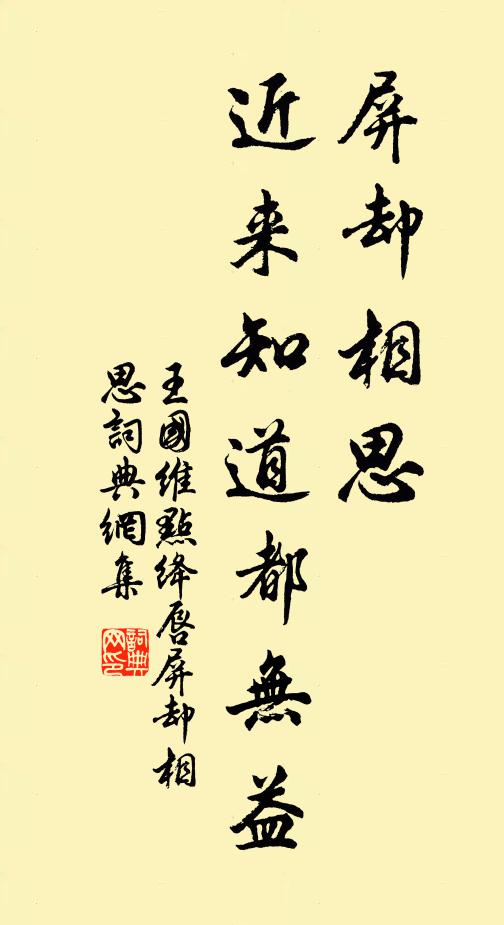 屏却相思
近来知道都無益
王國維點绛唇屏却相
思詞典網集
詞典网印